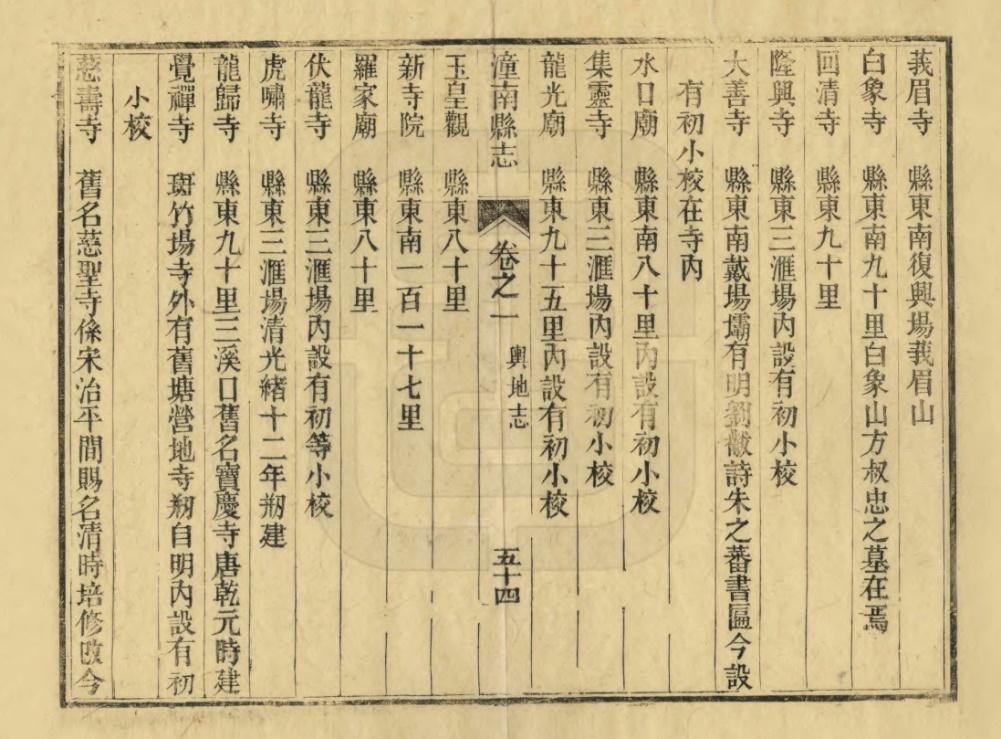 莪眉寺　縣東南復興場莪眉山
白象寺　縣東南九十里白象山方叔忠之墓在焉
回清寺　縣東九十里
隆興寺　縣東三滙場內設有初小校
大善寺　縣東南戴場壩有明劉　詩朱之蕃書匾今設
有初小校在寺內
水口廟　縣東南八十里內設有初小校
集靈寺　縣東三滙場內設有初小校
龍光廟　縣東九十五里內設有初小校
潼南縣志　卷之一　輿地志　五十四
玉皇觀　縣東八十里
新寺院　縣東南一百一十七里
羅家廟　縣東八十里
伏龍寺　縣東三滙場內設有初等小校
虎嘯寺　縣東三滙場清光緒十二年剙建
龍歸寺　縣東九十里三溪口舊名寶慶寺唐乾元時建
覺禪寺　斑竹場寺外有舊塘營地寺剙自明內設有初
小校
慈壽寺　舊名慈聖寺係宋治平間賜名清時培修改今